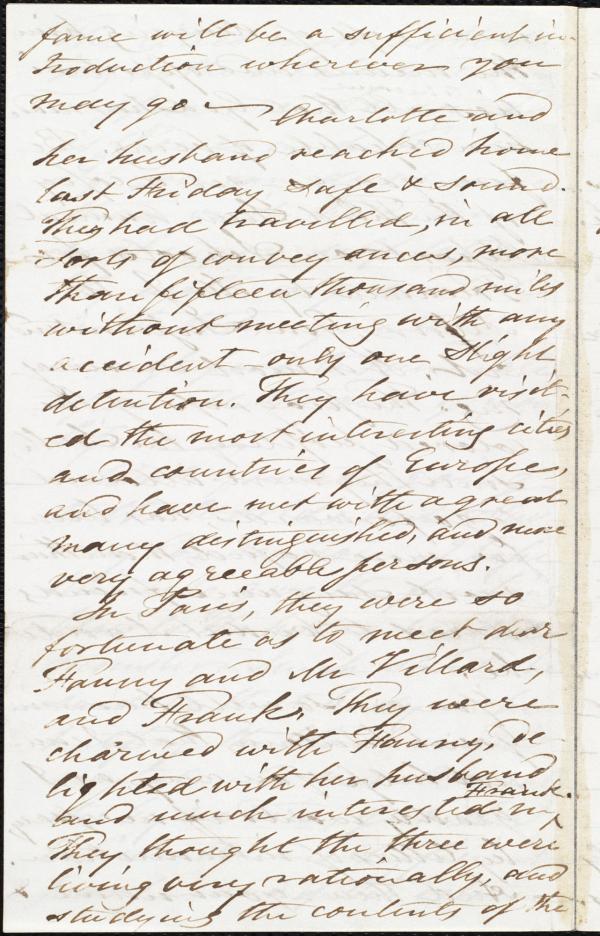 fame will be a sufficient in-
troduction wherever you
may go — Charlotte and
her husband reached home
last Friday safe & sound.
They had travelled, in all
sorts of conveyances, more
than fifteen thousand miles
without meeting with any
accident - only one slight
detention. They have visit-
ed the most interesting cities
and countries of Europe,
and have met with a great
many distinguished, and more
very agreeable persons.
In Paris, they were so
fortunate as to meet dear
Fanny and Mr Villard,
and Frank. They were
charmed with Fanny, de-
lighted with her husband
and much interested in Frank.
They thought the three were
living very rationally, and
studying the contents of the